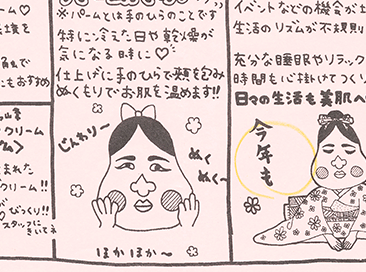 ※パームとは手のひらのことです
特に冷えた日や乾燥が
気になる時に♡
仕上げに手のひらで頬を包み
ぬくもりでお肌を温めます!!
じんわりー
ぬく
ぬく〜
ほかほか〜
イベントなどの機会が
生活のリズムが不規則
充分な睡眠やリラック
時間も心掛けてつくり
日々の生活も美肌へ
今年も
ーム♡
もおすすめ
クリーム
ム〉
まれた
クリーム!!
びっくり!!
スタッフに
きいてネ